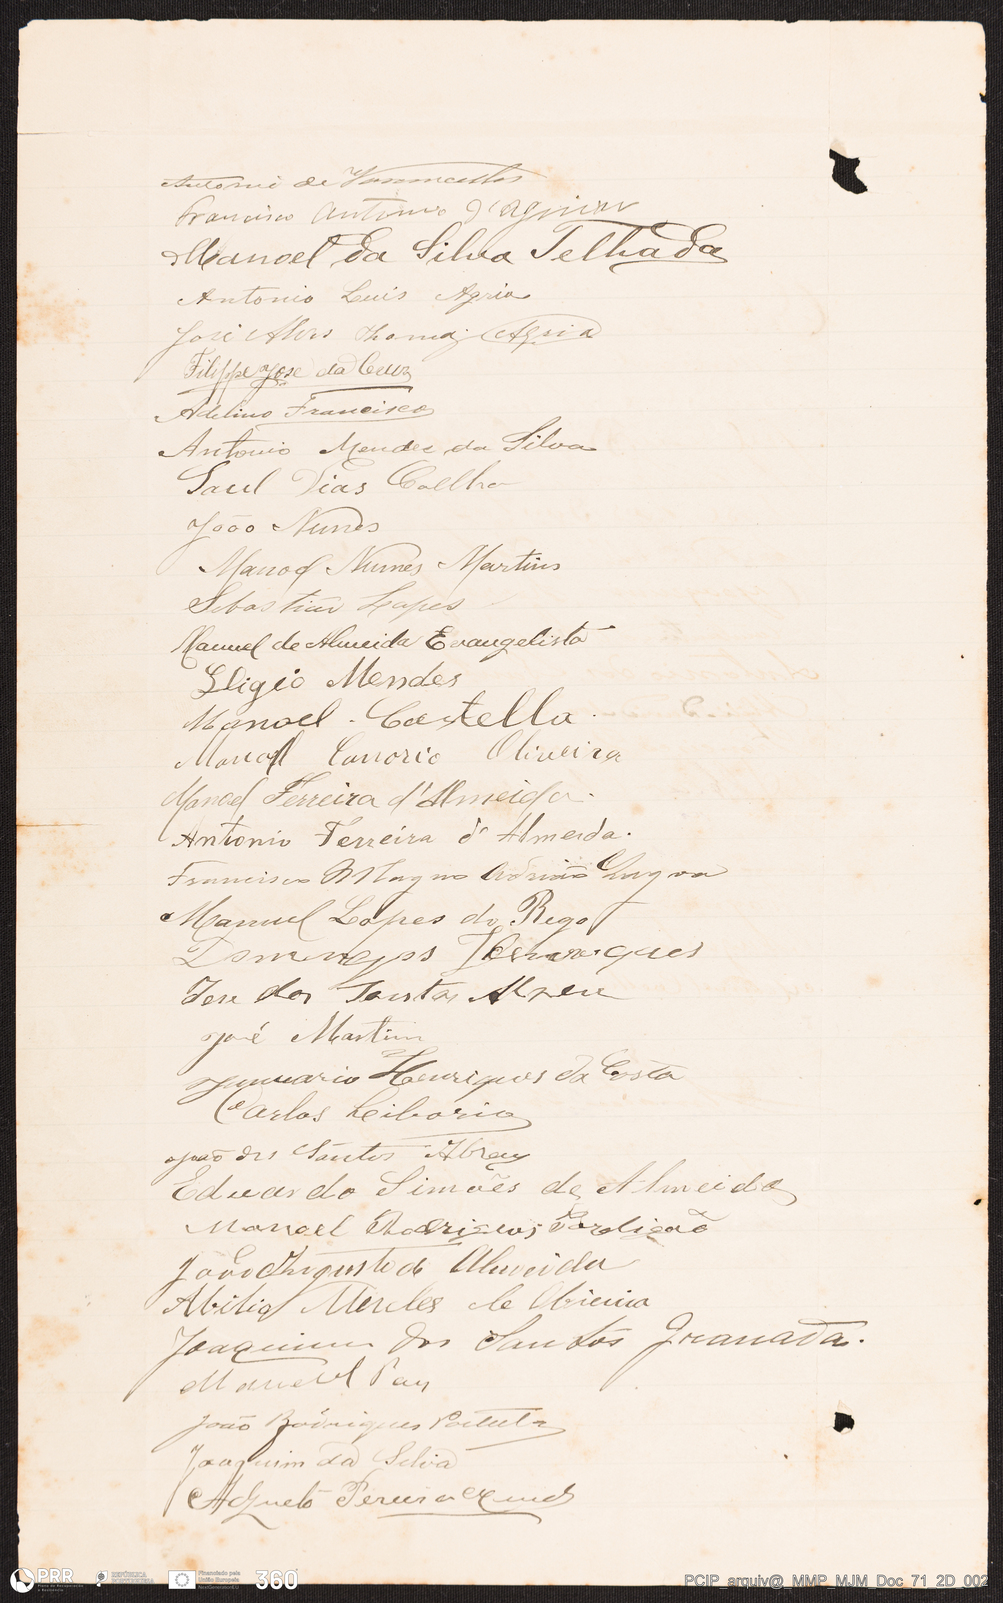 Antonio de Vasconcellos
Francisco Antonio d'Aguiar
Manoel da Silva Telhada
Antonio Luis Agria
José Alves Thomaz Agria
Filippe José da Cruz
Adelino Francisco
Antonio Mendes da Silva
Saul Dias Coelho
João Nunes
Manoel Nunes Martins
Sebastião Lopes
Manuel de Almeida Evangelista
Eligio Mendes
Manoel Castella
Manoel Oliveira
Manoel Ferreira d'Almeida.
Antonio Ferreira d'Almeida.
Francisco Magno
Manuel Lopes do Rego
Domingos Henriques
José dos Santos Abreu
José Martins
Januario Henriques da Costa
Carlos Liborio
João dos Santos Abreu
Eduardo Simões de Almeida
Manoel Rodrigues
João Augusto de Almeida
Abilio Mendes de
Joaquim dos Santos Granada.
Manuel
João Rodrigues
Joaquim da Silva
Pereira
PRR
Plano de Recuperação e Resiliência
REPÚBLICA PORTUGUESA
Financiado pela União Europeia
NextGenerationEU
360
PCIP_arquiv@_MMP_MJM_Doc_71_2D_002